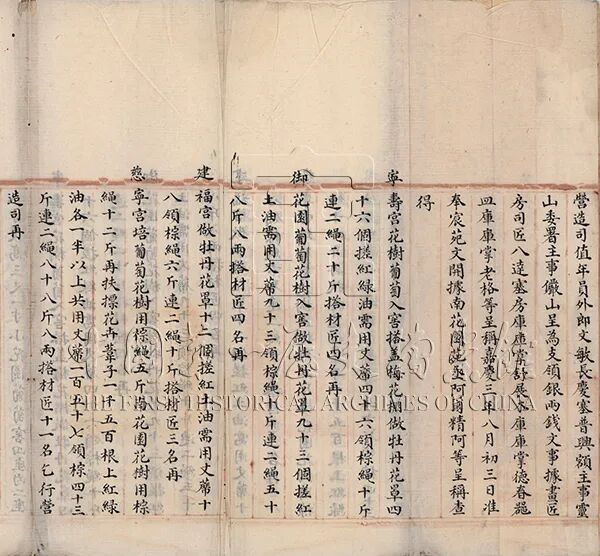 營造司值年員外郎文敏長慶塞普興額主事靈
山委署主事儼山呈為支領銀兩錢文事據畫匠
房司匠八達塞房庫庫掌舒展木庫庫掌德春器
皿庫庫掌老格等呈稱嘉慶三年八月初三日准
奉宸苑文開據南花園苑丞阿爾精阿等呈稱查
得
寧壽宮花樹葡萄入窖搭蓋梅花棚做牡丹花罩四
十六個搓紅綠油需用丈蓆四十六領棕繩十斤
連二繩二十斤搭材匠四名再
御花園葡萄花樹入窖做牡丹花罩九十三個搓紅
土油需用丈蓆九十三領棕繩十斤連二繩五十
八斤八兩搭材匠四名再
建福宮做牡丹花罩十二個搓紅土油需用丈蓆十
八領棕繩六斤連二繩十斤搭材匠三名再
慈寧宮培葡萄花樹用棕繩五斤 花園花樹用棕
繩十二斤再扶摽花卉葦子一千五百根上紅綠
油各一半以上共用丈蓆一百五十七領棕四十三
斤連二繩八十八斤八兩搭材匠十一名乞行營
造司再
THE FIRST HISTORICAL ARCHIVES OF CHINA